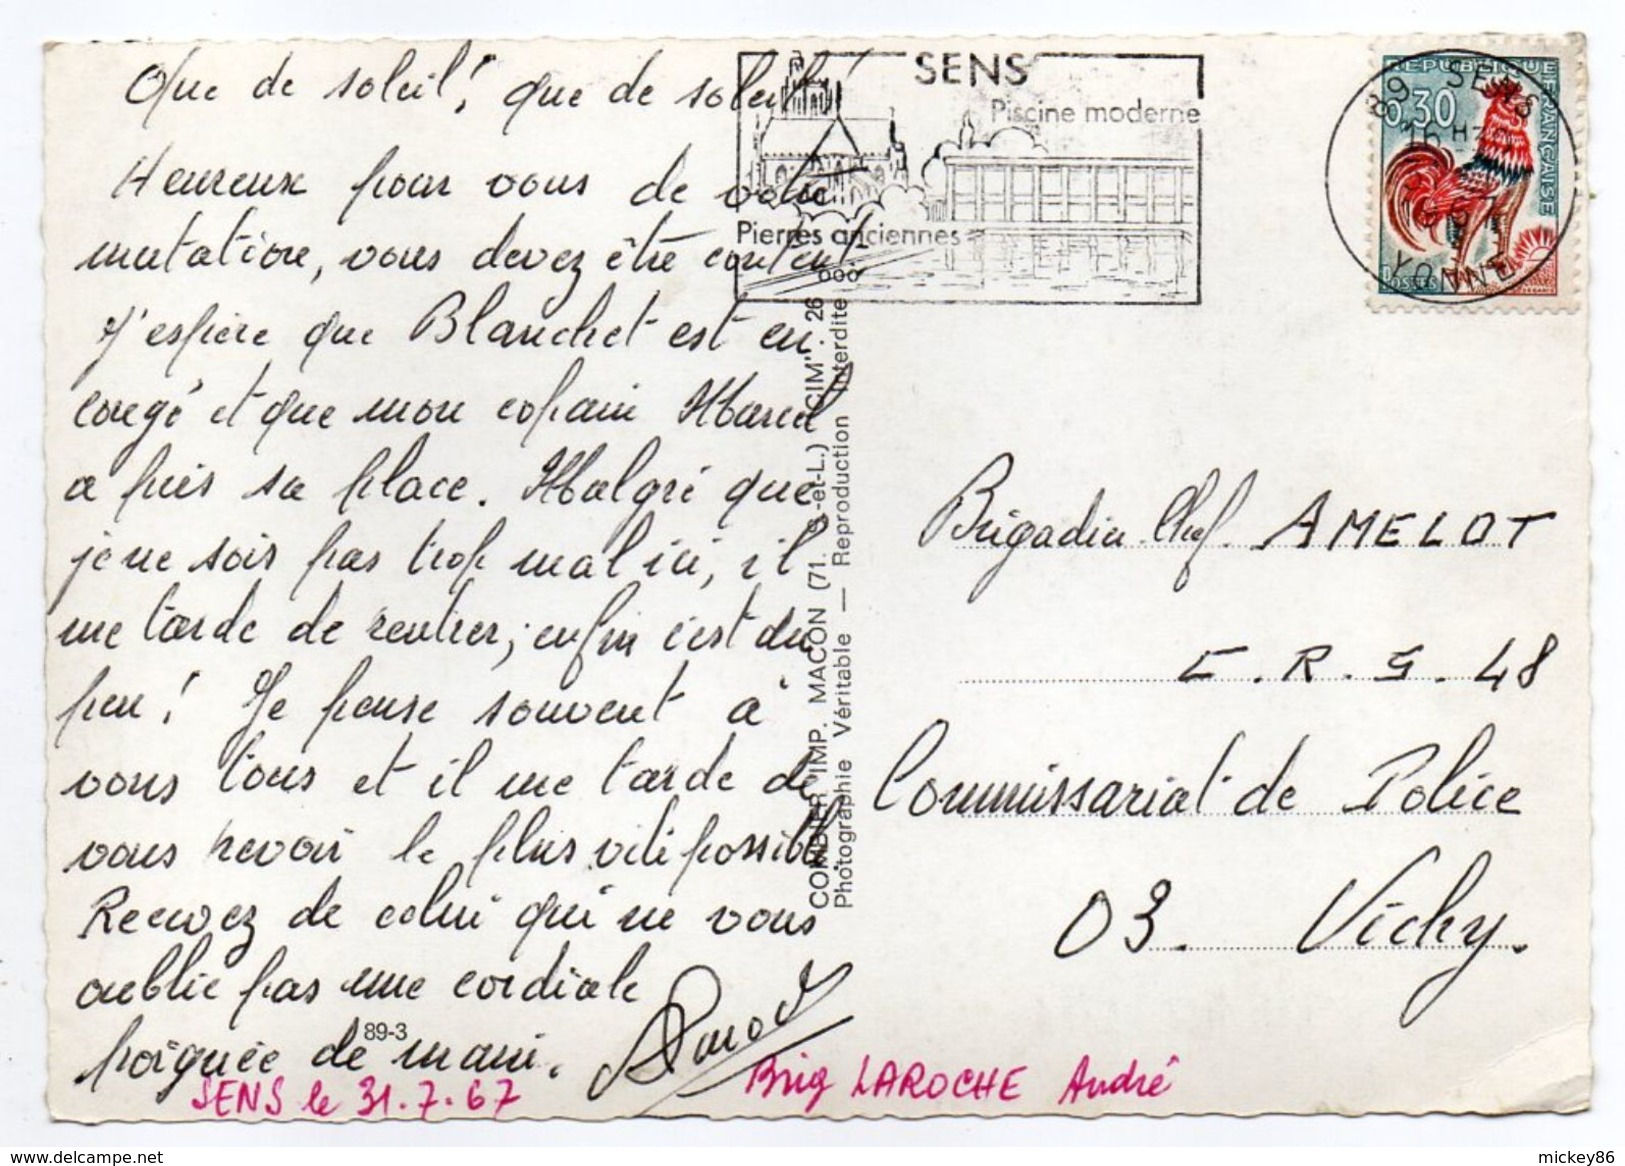 Que de soleil! que de soleil!
Heureux pour vous de votre
mutation, vous devez être content!
J'espère que Blanchet est en
congé et que mon copain Marcel
a pris sa place. Malgré que
je ne sois pas trop mal ici, il
me tarde de rentrer, enfin c'est du
peu! Je pense souvent à
vous tous et il me tarde de
vous revoir le plus vite possible.
Recevez de celui qui ne vous
oublie pas une cordiale
poignée de main.
89-3
SENS le 31.7.67
Brig LAROCHE André
SENS
Piscine moderne
Pierres anciennes
COMBIER IMP. MACON (71. S.-et-L.) "CIM". 26
Photographie Véritable — Reproduction Interdite
REPUBLIQUE FRANÇAISE
0,30
POSTES
89 SENS
YONNE
Brigadier Chef AMELOT
C.R.S. 48
Commissariat de Police
03. Vichy.
delcampe.net
mickey86